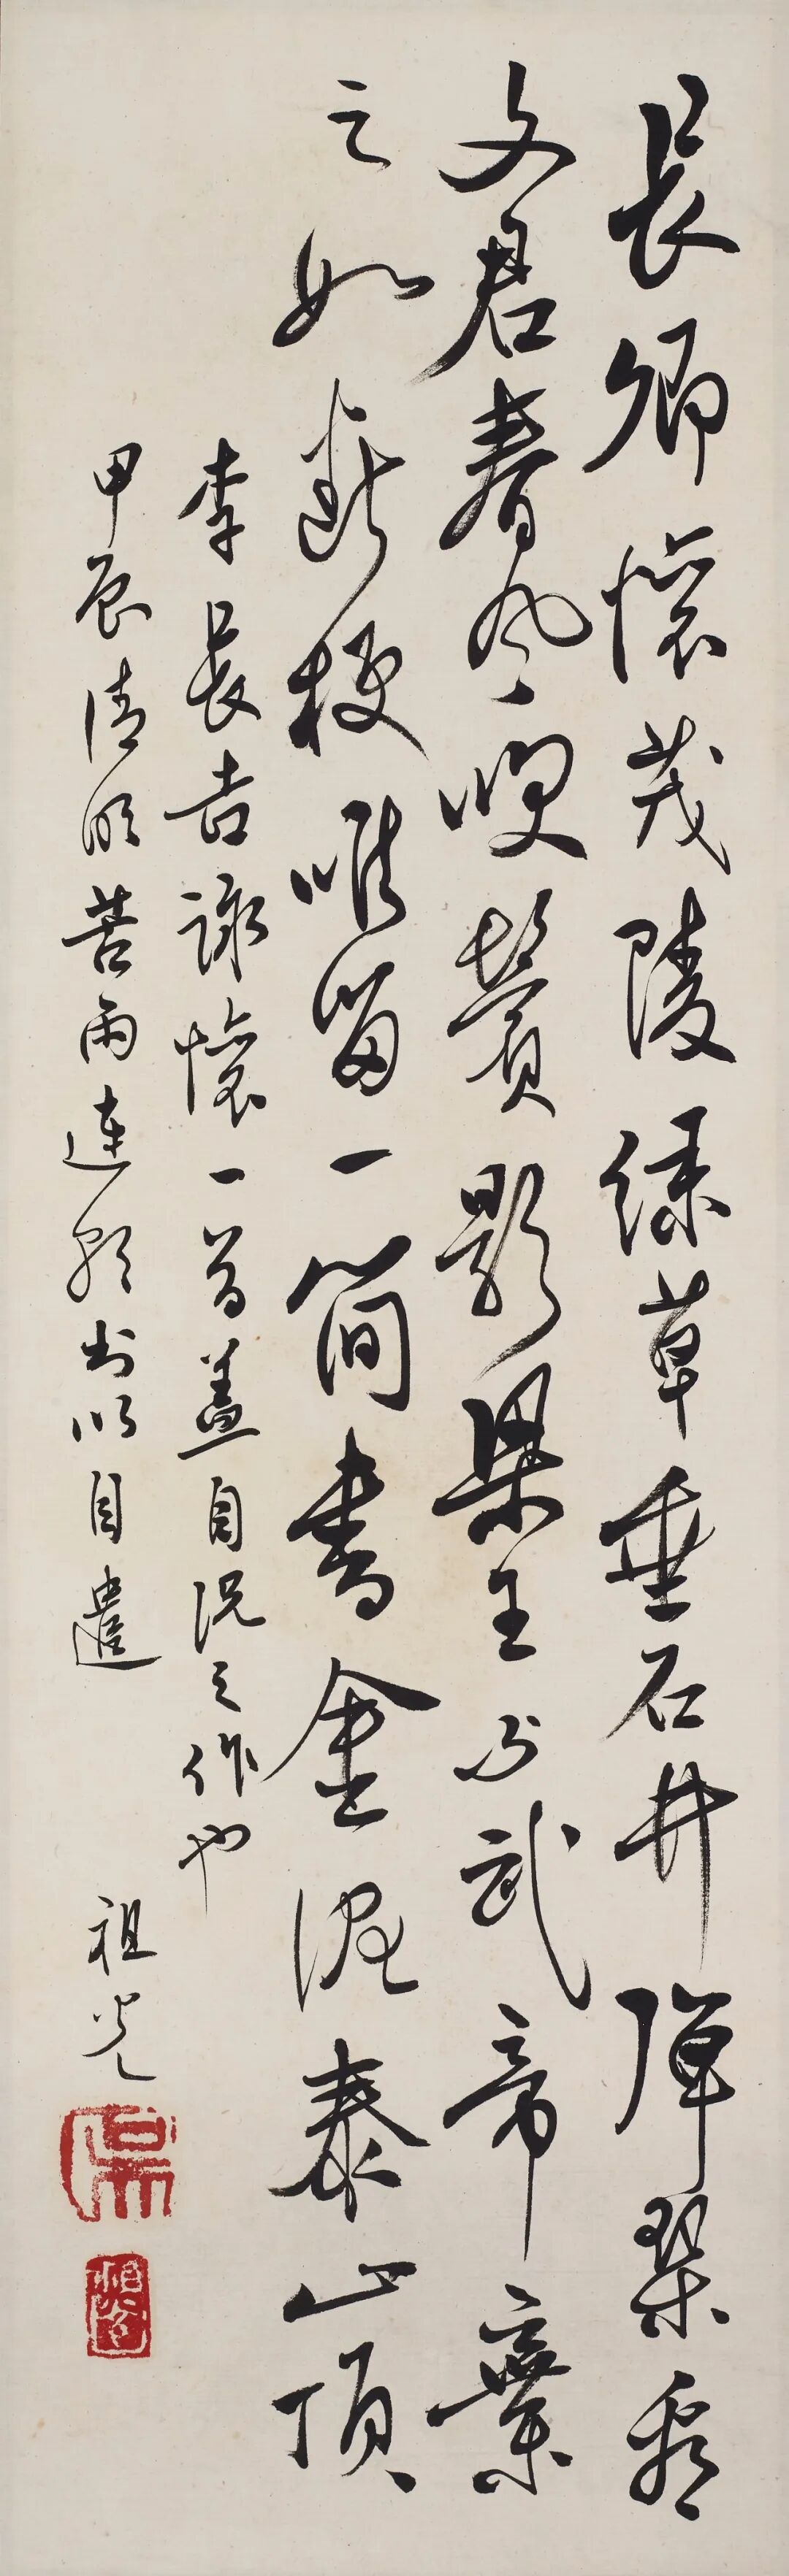 長卿懷茂陵綠草垂石井彈琴看
文君春風吹鬢影梁王與武帝棄
之如斷梗唯留一簡書金泥泰山頂
李長吉詠懷一首蓋自況之作也
甲辰清明苦雨連朝書以自遣
祖光
吳